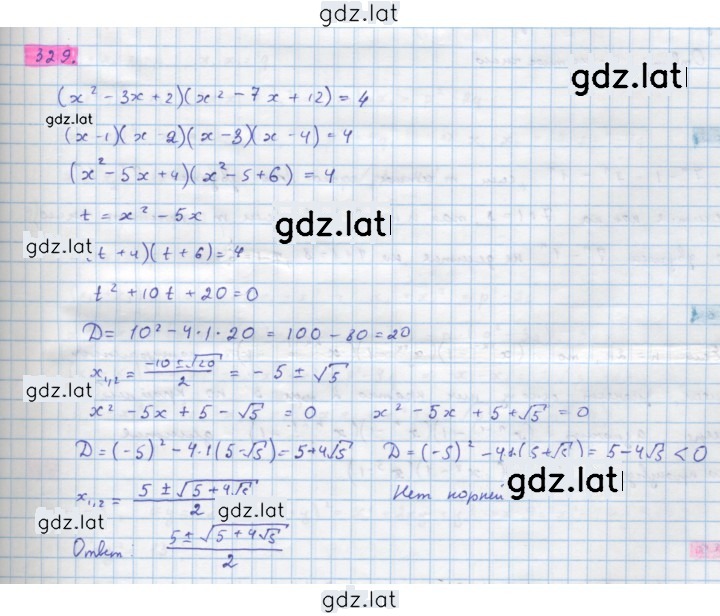 gdz.lati
329.
gdz.lati
(x² - 3x + 2)(x² - 7x + 12) = 4
gdz.lati
(x - 1)(x - 2)(x - 3)(x - 4) = 4
(x² - 5x + 4)(x² - 5 + 6) = 4
t = x² - 5x
gdz.lati
gdz.lati
(t + 4)(t + 6) = 4
t² + 10t + 20 = 0
D = 10² - 4·1·20 = 100 - 80 = 20
x₁,₂ = (-10 ± √20)/2 = - 5 ± √5
gdz.lati
x² - 5x + 5 - √5 = 0 x² - 5x + 5 + √5 = 0
D = (-5)² - 4·1(5 - √5) = 5 + 4√5 D = (-5)² - 4·1·(5 + √5) = 5 - 4√5 < 0
x₁,₂ = (5 ± √(5 + 4√5))/2 Нет корней
gdz.lati
gdz.lati
gdz.lati
Ответ: (5 ± √(5 + 4√5))/2
gdz.lati